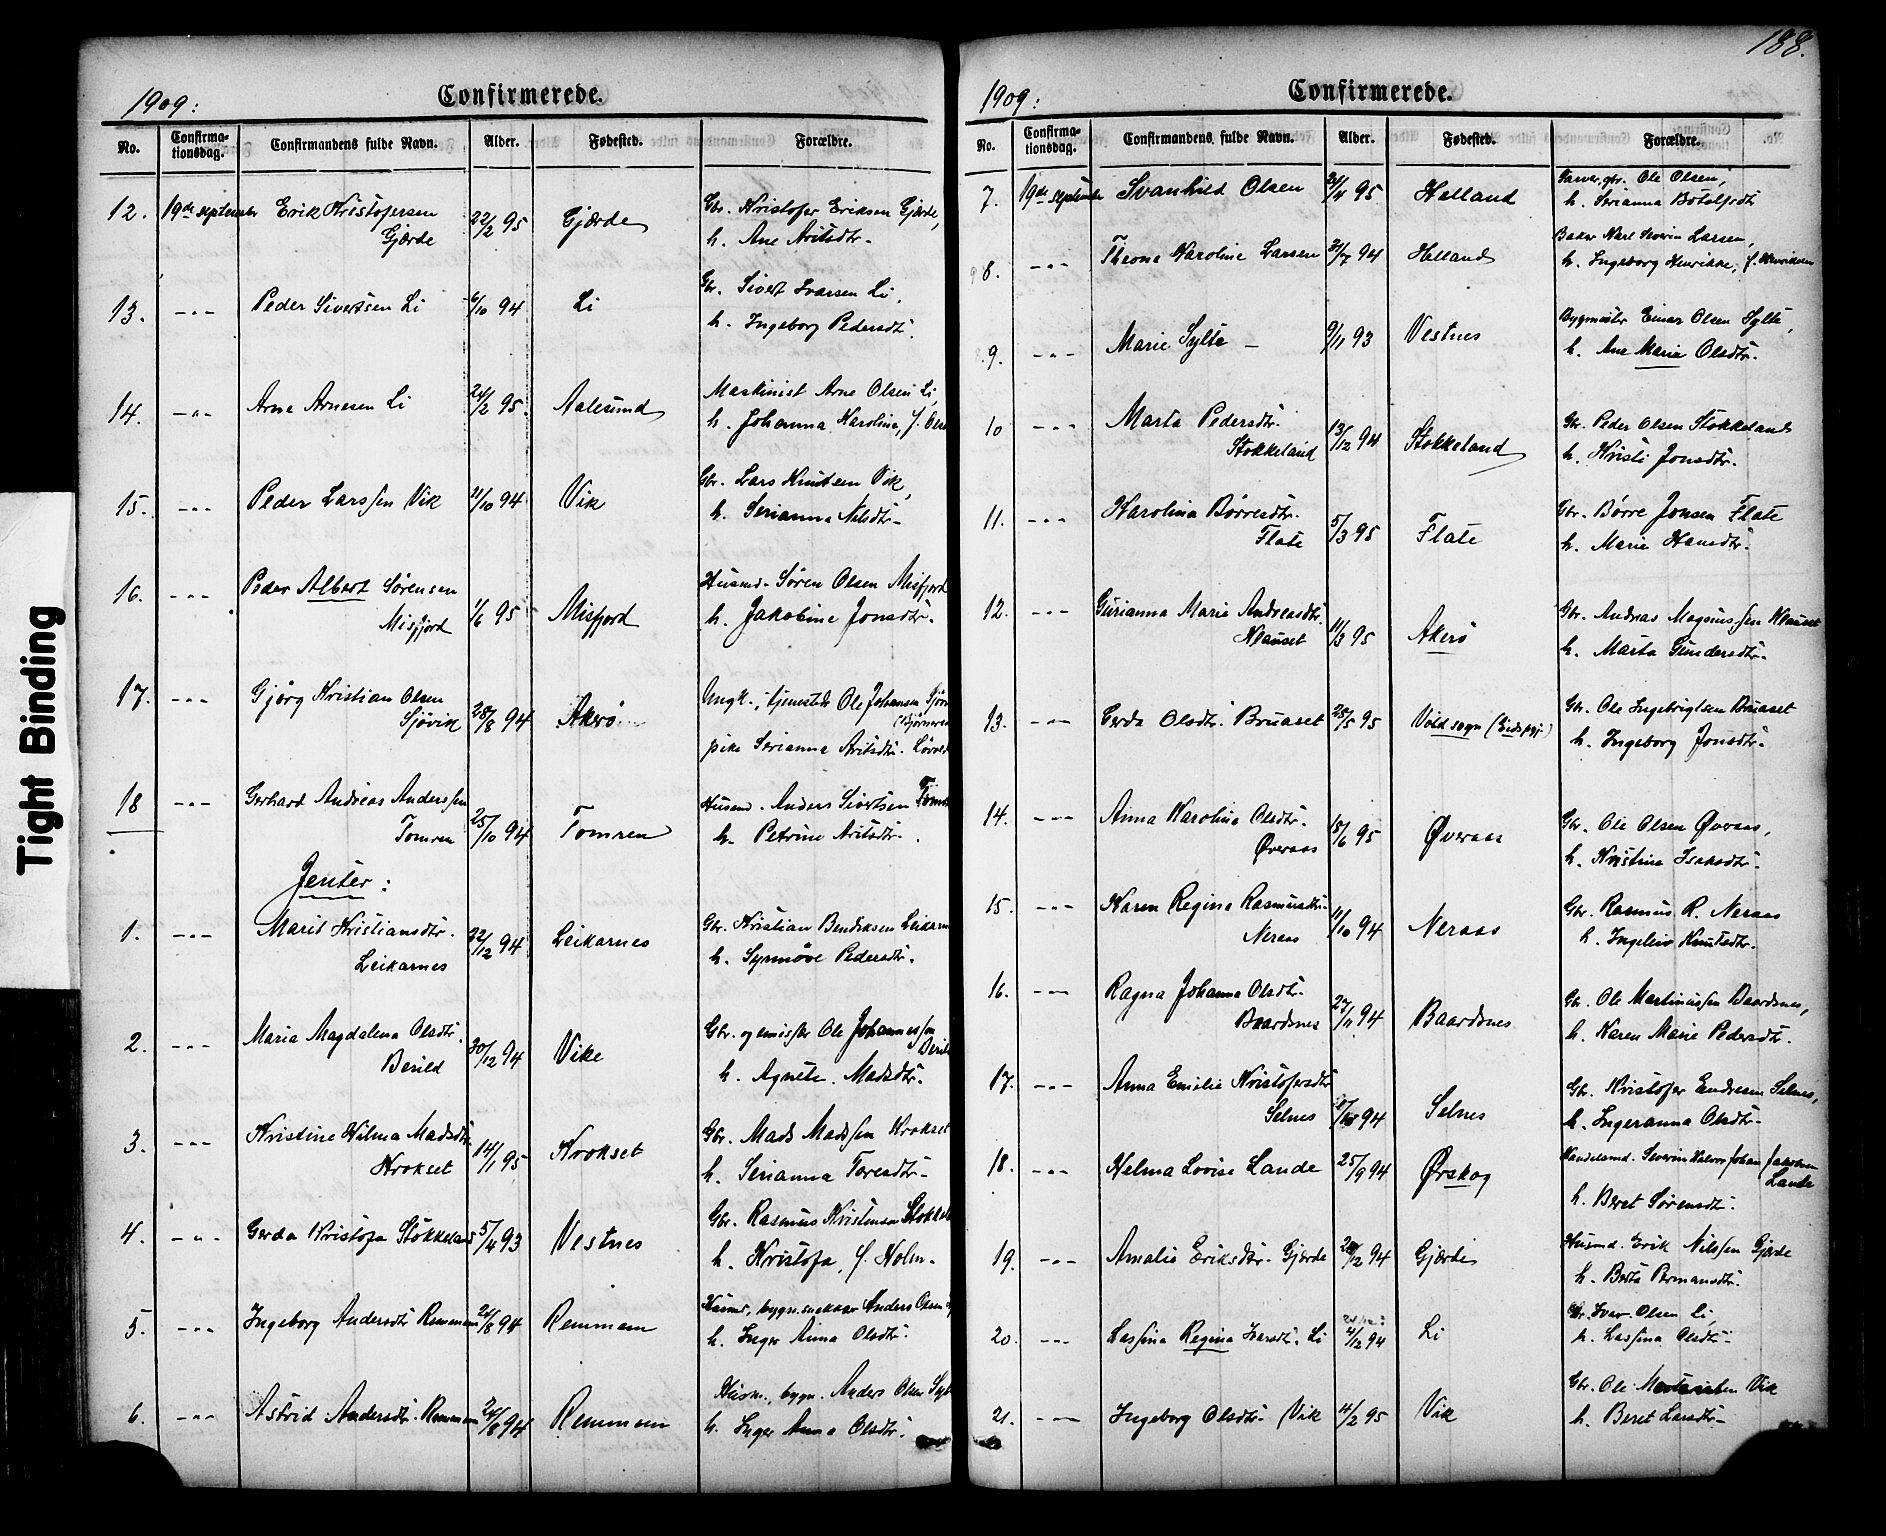 188.
Tight Binding
1909:
Confirmerede.
No. Confirma-tionsdag. Confirmandens fulde Navn. Alder. Fødested. Forældre.
12. 19de september Erik Kristofersen 22/2 95 Gjærde Gbr. Kristofer Eriksen Gjærde,
Gjærde h. Ane Arilsdtr.
13. -"- Peder Sivertsen Li 6/10 94 Li Gbr. Sivert Ivarsen Li,
h. Ingeborg Pedersdtr.
14. -"- Arne Arnesen Li 24/2 95. Aalesund Maskinist Arne Olsen Li,
h. Johanna Karolina, f.
15. -"- Peder Larssen Vik 21/10 94 Vik Gbr. Lars Knutsen Vik,
h. Serianna Nilsdtr.
16. -"- Peder Albert Sørensen 1/6 95 Misfjord Husmd. Søren Olsen Misfjord
Misfjord h. Jakobine Jonsdtr.
17. -"- Gjørg Kristian Olsen 28/8 94 Akerø Ungk., tjenestedr. Ole Johansen
Sjøvik pike Serianna Arilsdtr.
18 -"- Gerhard Andreas Anderssen 25/10 94 Tomren Husmd. Anders Sivertsen
Tomren h. Petrine Arilsdtr.
Jenter:
1. -"- Marit Kristiansdtr. 22/12 94 Leikarnes Gbr. Kristian Bendiksen Leikarn
Leikarnes h. Synnøve Pedersdtr.
2. -"- Maria Magdalena Olsdtr. 30/12 94 Vike Gbr. og Ole Johannessen
Berild h. Agnete Madsdtr.
3. -"- Kristine Hilma Madsdtr. 14/1 95 Krokset Gbr. Mads Madssen Krokset
Krokset h. Serianna Toresdtr.
4. -"- Gerda Kristofa Stokkeland 5/4 93 Vestnes Gbr. Rasmus Kristensen Stokkela
h. Kristofa, f. Holm.
5. -"- Ingeborg Andersdtr. Remmem 24/8 94 Remmem Husmd, bygn.snekker Anders Olsen
h. Inger Anna Olsdtr.
6. -"- Astrid Andersdtr. Remmem 24/8 94 Remmem Husm., bygn. Anders Olsen Sylt
h. Inger Anna Olsdtr.
1909:
Confirmerede.
No. Confirma-tionsdag. Confirmandens fulde Navn. Alder. Fødested. Forældre.
7. 19de september Svanhild Olsen 24/4 95 Helland Garver, gbr. Ole Olsen,
h. Serianna Botolfsdtr.
8. -"- Theona Karoline Larsen 31/7 94 Helland Baker Karl Severin Larsen,
h. Ingeborg Henrikke, f. Henriksen
9. -"- Marie Sylte 9/11 93 Vestnes Bygmester Einar Olsen Sylte,
h. Ane Marie Olsdtr.
10 -"- Marta Pedersdtr. 13/12 94 Stokkeland Gbr. Peder Olsen Stokkeland
Stokkeland h. Kristi Jonsdtr.
11. -"- Karolina Børresdtr. 5/3 95 Flate Gbr. Børre Jonsen Flate
Flate h. Marie Hansdtr.
12. -"- Gurianna Marie Andreasdtr. 11/3 95 Akerø Gbr. Andreas Magnussen Klauset
Klauset h. Marta Gundersdtr.
13. -"- Gerda Olsdtr. Bruaset 25/5 95 Vold sogn (Eids pgj.) Gbr. Ole Ingebrigtsen Bruaset
h. Ingeborg Jonsdtr.
14. -"- Anna Karolina Olsdtr. 15/6 95 Øveraas Gbr. Ole Olsen Øveraas,
Øveraas h. Kristina Isaksdtr.
15. -"- Karen Regine Rasmusdtr. 11/10 94 Neraas Gbr. Rasmus R. Neraas
Neraas h. Ingeleiv Knutsdtr.
16. -"- Ragna Johanna Olsdtr. 27/11 94 Baardsnes Gbr. Ole Martinussen Baardsnes,
Baardsnes h. Karen Marie Pedersdtr.
17. -"- Anna Emilie Kristofersdtr. 94 Selnes Gbr. Kristofer Endresen Selnes,
Selnes h. Ingeranna Olsdtr.
18. -"- Helma Lovise Lande 25/9 94 Ørskog Handelsmd. Severin Halvor Johan Jakobsen
Lande
h. Beret Sørensdtr.
19. -"- Amalie Eriksdtr. Gjærde 94 Gjærde Husmd. Erik Nilssen Gjærde
h. Berta Permansdtr.
20. -"- Lassina Regina Ivarsdtr. Li 4/12 94 Li Gbr. Ivar Olsen Li,
h. Lassina Olsdtr.
21. -"- Ingeborg Olsdtr. Vik 4/2 95 Vik Gbr. Ole Vik
h. Beret Larsdtr.